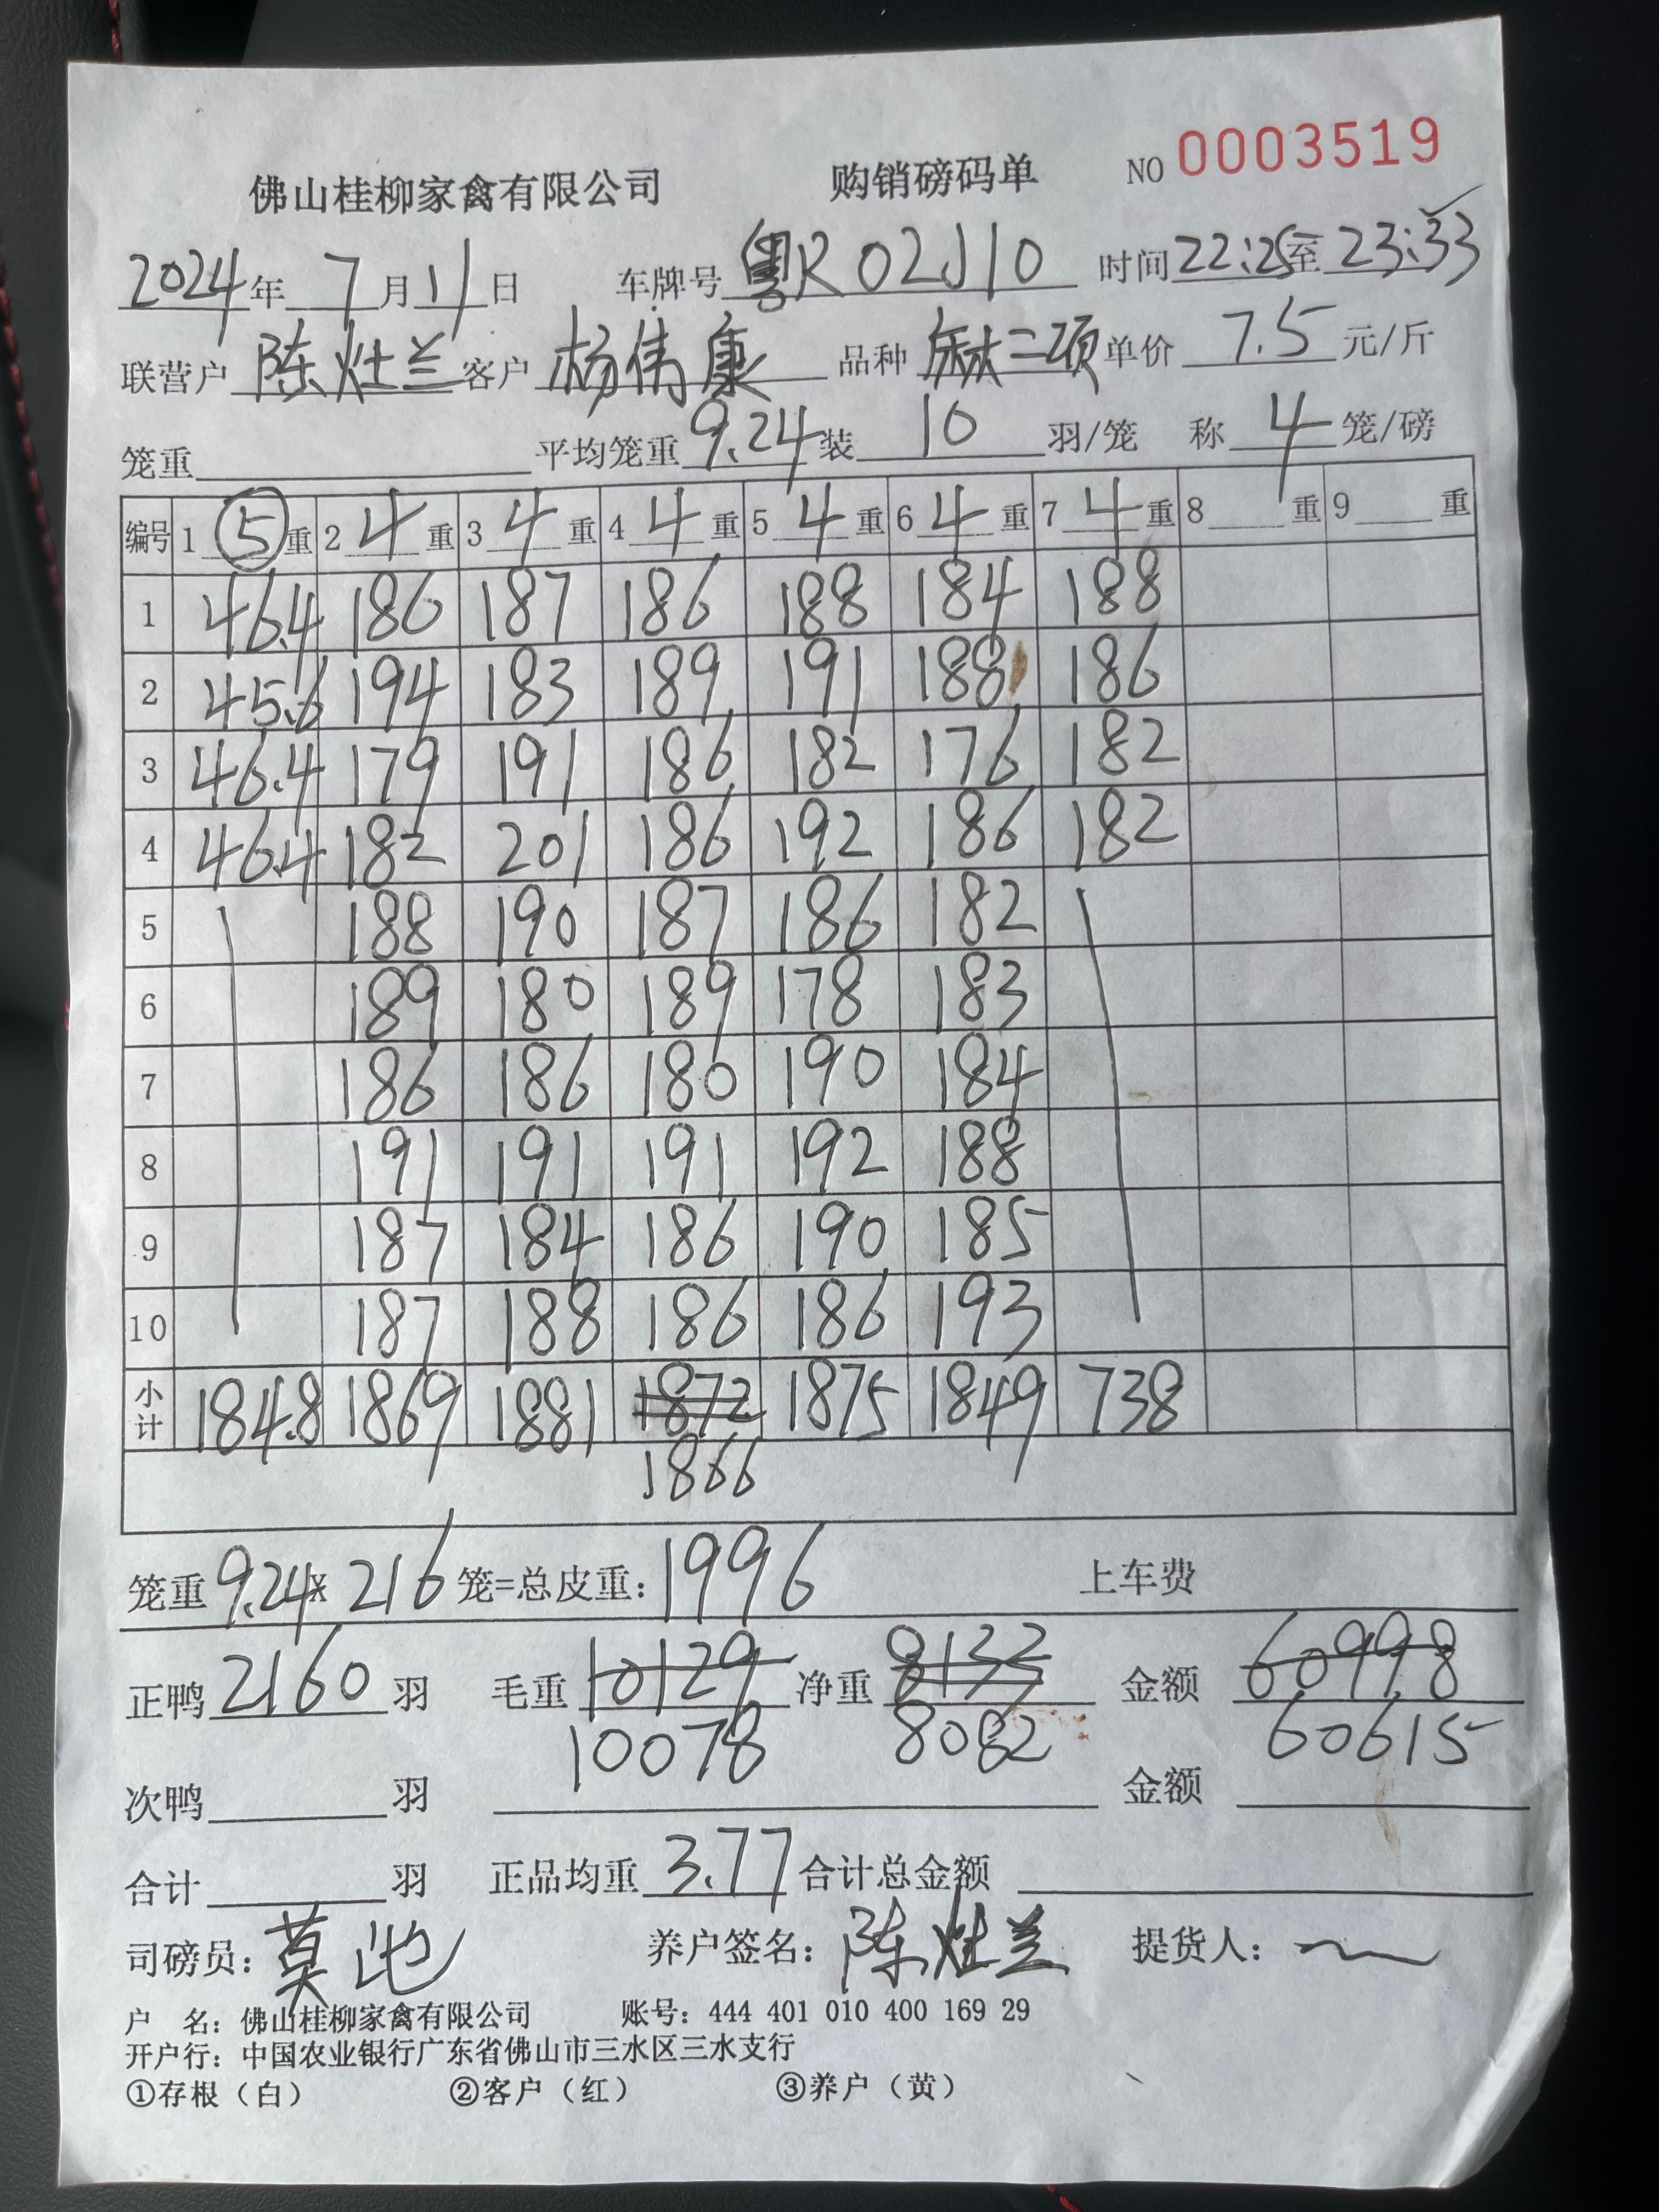 佛山桂柳家禽有限公司 购销磅码单 NO 0003519
2024年 7月11日 车牌号 粤R02J10 时间 22:25至23:33
联营户 陈灶兰 客户 杨伟康 品种 二项 单价 7.5 元/斤
笼重 平均笼重 9.24 装 10 羽/笼 称 4 笼/磅
编号 1 5 重 2 4 重 3 4 重 4 4 重 5 4 重 6 4 重 7 4 重 8 重 9 重
1 46.4 186 187 186 188 184 188
2 45.6 194 183 189 191 188 186
3 46.4 179 191 186 182 176 182
4 46.4 182 201 186 192 186 182
5 188 190 187 186 182
6 189 180 189 178 183
7 186 186 180 190 184
8 191 191 191 192 188
9 187 184 186 190 185
10 187 188 186 186 193
小计 184.8 1869 1881 1872 1875 1849 738
1866
笼重 9.24 × 216 笼=总皮重: 1996 上车费
正鸭 2160 羽 毛重 10129 净重 8133 金额 60998
10078 8082 60615
次鸭 羽 金额
合计 羽 正品均重 3.77 合计总金额
司磅员: 莫 养户签名: 陈灶兰 提货人:
户 名: 佛山桂柳家禽有限公司 账号: 444 401 010 400 169 29
开户行: 中国农业银行广东省佛山市三水区三水支行
①存根（白） ②客户（红） ③养户（黄）